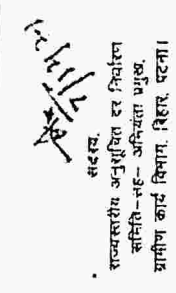 सदस्य,
राज्यस्तरीय अनुसूचित दर निर्धारण
समिति-सह- अभियंता प्रमुख,
ग्रामीण कार्य विभाग, बिहार, पटना।